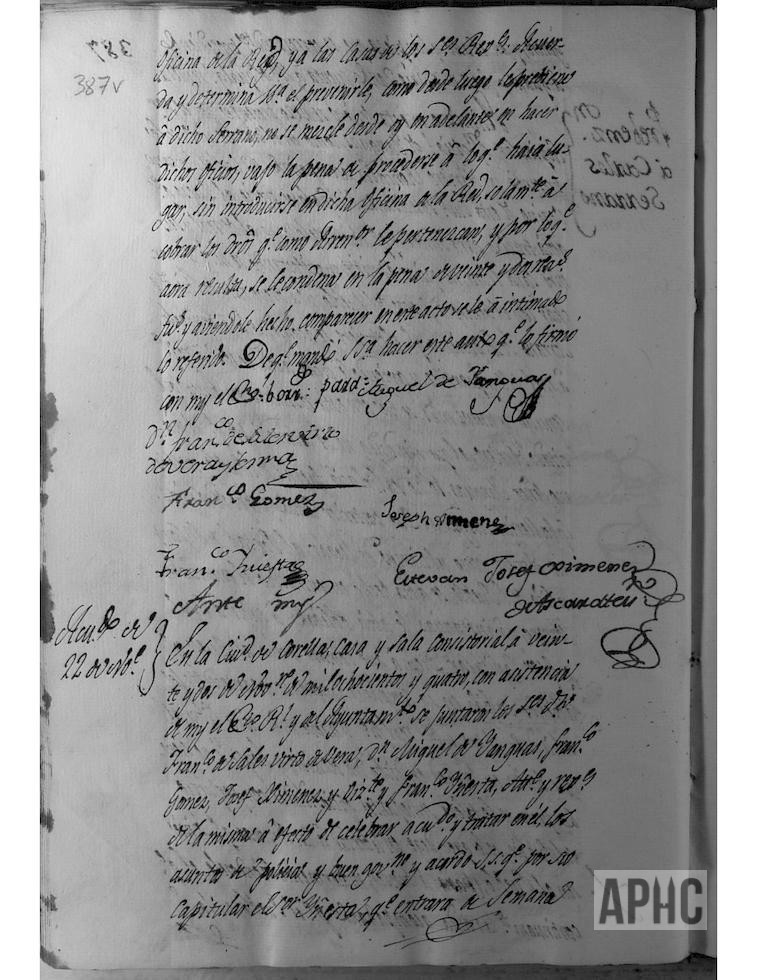 387v
oficina de la Red, y a las casas de los Ses Rexs: Acuer-
da y determina SSa el prevenirle, como desde luego le previene
da
à dicho Serrano, no se mezcle desde oy en adelante en hacer
dichos oficios, vajo la pena de procederse à lo qe haia lu-
gar, sin introducirse en dicha oficina de la Red, solamte à
cobrar los dros qe como Arrenor le pertenezcan, y por lo qe
aora resulta, se le condena en la pena de veinte y dos reas
ftes y aviendole hecho comparecer en este acto se le à intimado
lo referido. De qe mandó SSa hacer este auto qe lo firmó
con my el Esno: borr: padd: Miguel de Yanguas
Dn Franco de Sales virto
de vera y
Franco Gomez
Joseph Ximenez
Franco Yñesta
Estevan Josef Ximenez
de Ascarate
Ante my
Acudo de
22 de Nobe
En la Ciud de Corella, casa y sala consistorial à vein-
te y dos de Nobre de mil ochocientos y quatro, con asistencia
de my el Esno Rl y del Ayuntamto se juntaron los Ses Dn
Franco de Sales virto de Vera, Dn Miguel de Yanguas, Franco
Gomez, Josef Ximenez y Franco Yñesta, Alte y rexs
de la misma à efecto de celebrar acudo y tratar en él, los
asuntos de policia y buen govno y acordó S.S. qe por no
Capitular el Sor Yñesta, qe entrara de Semana
APHC